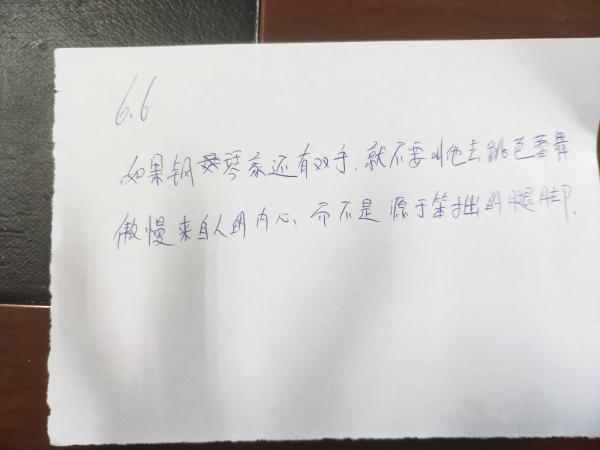 6.6
如果钢琴家还有双手,就不要叫他去跳芭蕾舞.
傲慢来自人的内心、而不是源于笨拙的腿脚.